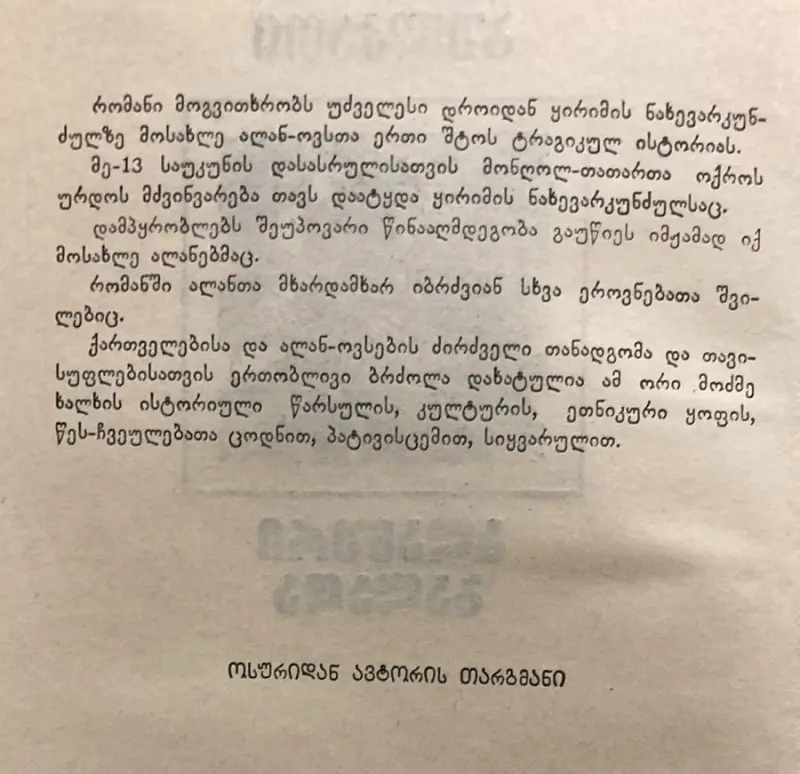 რომანი მოგვითხრობს უძველესი დროიდან ყირიმის ნახევარკუნ-
ძულზე მოსახლე ალან-ოვსთა ერთი შტოს ტრაგიკულ ისტორიას.
მე-13 საუკუნის დასასრულისათვის მონღოლ-თათართა ოქროს
ურდოს მძვინვარება თავს დაატყდა ყირიმის ნახევარკუნძულსაც.
დამპყრობლებს შეუპოვარი წინააღმდეგობა გაუწიეს იმჟამად იქ
მოსახლე ალანებმაც.
რომანში ალანთა მხარდამხარ იბრძვიან სხვა ეროვნებათა შვი-
ლებიც.
ქართველებისა და ალან-ოვსების ძირძველი თანადგომა და თავი-
სუფლებისათვის ერთობლივი ბრძოლა დახატულია ამ ორი მოძმე
ხალხის ისტორიული წარსულის, კულტურის, ეთნიკური ყოფის,
წეს-ჩვეულებათა ცოდნით, პატივისცემით, სიყვარულით.
ოსურიდან ავტორის თარგმანი